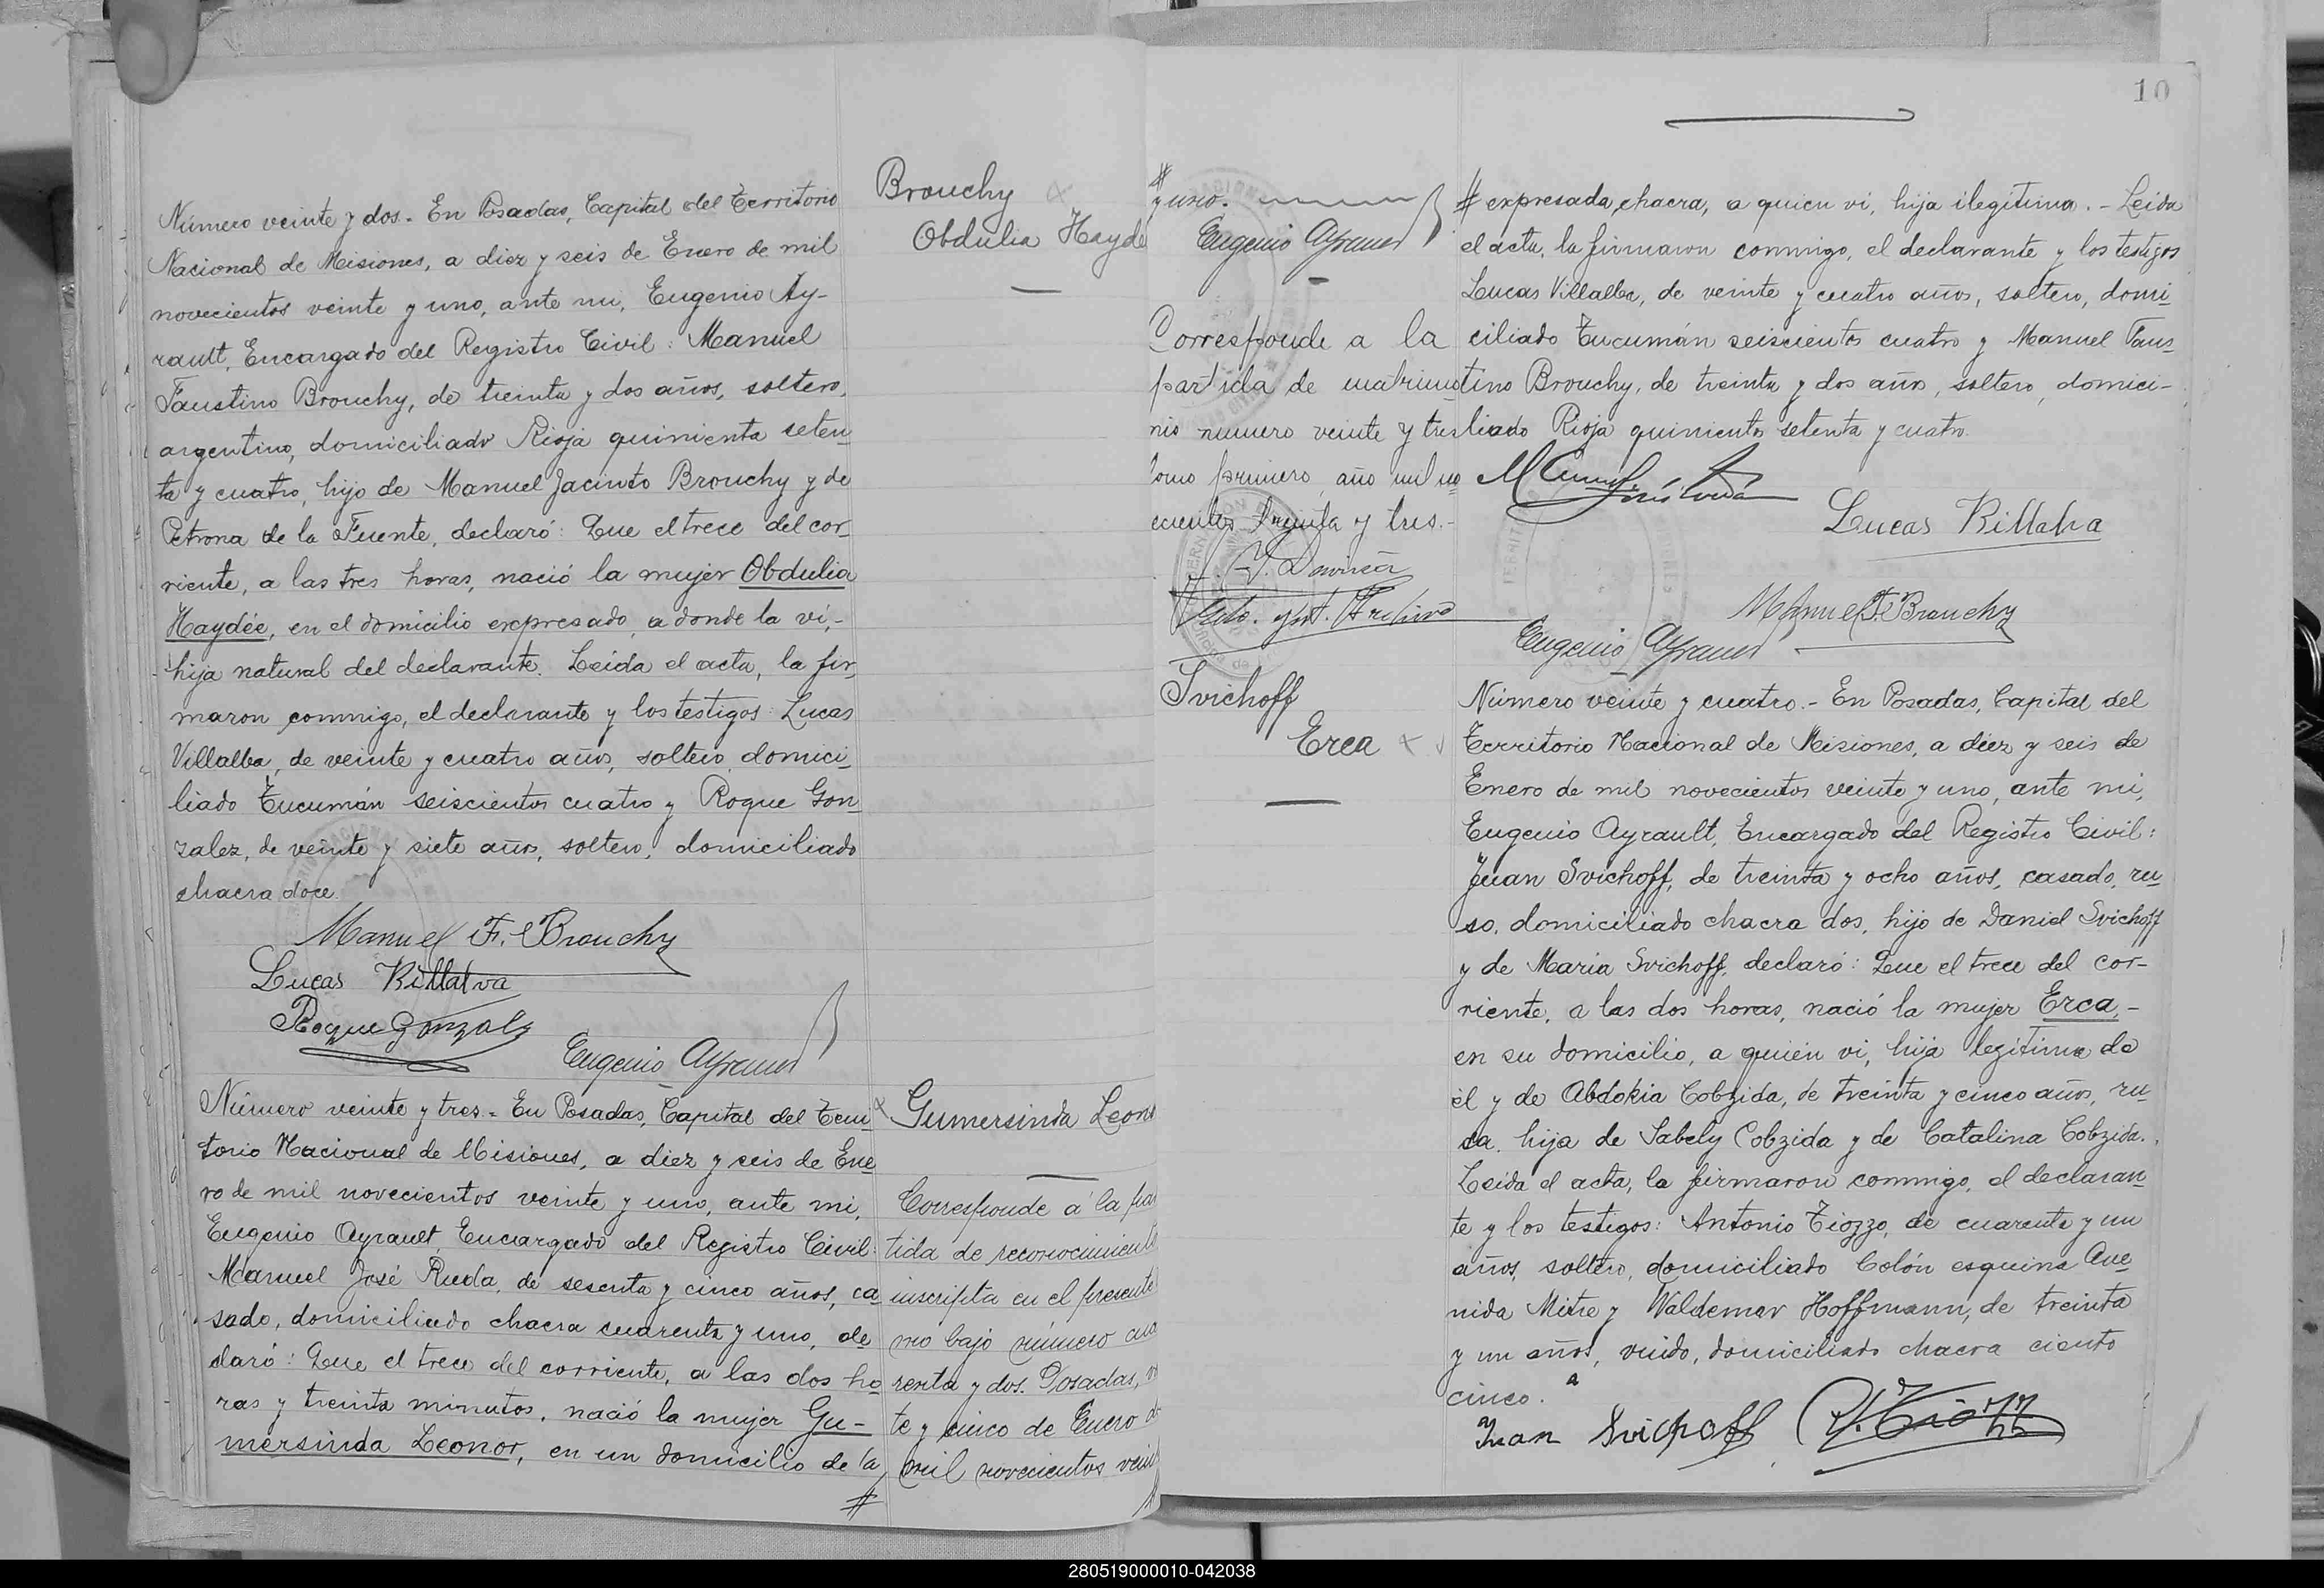 Número veinte y dos.- En Posadas, Capital del Territorio
Nacional de Misiones, a diez y seis de Enero de mil
novecientos veinte y uno, ante mi, Eugenio Ay-
rault, Encargado del Registro Civil: Manuel
Faustino Brouchy, de treinta y dos años, soltero,
argentino, domiciliado Rioja quinienta seten
ta y cuatro, hijo de Manuel Jacinto Brouchy y de
Petrona de la Fuente, declaró: Que el trece del cor-
riente, a las tres horas, nació la mujer Obdulia
Haydée, en el domicilio expresado, a donde la vi,-
hija natural del declarante. Leida el acta, la fir
maron conmigo, el declarante y los testigos: Lucas
Villalba, de veinte y cuatro años, soltero, domici
liado Tucumán seiscientos cuatro y Roque Gon
zalez, de veinte y siete años, soltero, domiciliado
chacra doce.
Manuel F. Brouchy
Lucas Villalva
Roque Gonzalz
Eugenio Ayrault
Brouchy
Obdulia Hayde
Número veinte y tres.- En Posadas, Capital del Terri
torio Nacional de Misiones, a diez y seis de Ene
ro de mil novecientos veinte y uno, ante mi,
Eugenio Ayrault, Encargado del Registro Civil:
Manuel José Rueda, de sesenta y cinco años, ca
sado, domiciliado chacra cuarenta y uno, de
claró: Que el trece del corriente, a las dos ho
ras y treinta minutos, nació la mujer Gu-
mersinda Leonor, en un domicilio de la
#
Gumersinda Leon
Corresponde á la par
tida de reconocimient
inscripta en el presente
mo bajo número cua
renta y dos. Posadas,
te y cinco de Enero d
mil novecientos vein
10
#
y uno.
Eugenio Ayrault
Corresponde a la
partida de matrimo
nio numero veinte y tres
tomo primero, año mil no
ecientos treinta y tres.-
Svichoff
Erca
# expresada chacra, a quien vi, hija ilegitima.- Leida
el acta, la firmaron conmigo, el declarante y los testigos
Lucas Villalba, de veinte y cuatro años, soltero, domi
ciliado Tucumán seiscientos cuatro y Manuel Faus
tino Brouchy, de treinta y dos años, soltero, domici-
liado Rioja quinientos setenta y cuatro.
Lucas Villalva
Manuel F. Brouchy
Eugenio Ayrault
Número veinte y cuatro.- En Posadas, Capital del
Territorio Nacional de Misiones, a diez y seis de
Enero de mil novecientos veinte y uno, ante mi,
Eugenio Ayrault, Encargado del Registro Civil:
Juan Svichoff, de treinta y ocho años, casado, ru
so, domiciliado chacra dos, hijo de Daniel Svichoff
y de Maria Svichoff, declaró: Que el trece del cor-
riente, a las dos horas, nació la mujer Erca,-
en su domicilio, a quien vi, hija legitima de
él y de Abdokia Cobzida, de treinta y cinco años, ru
sa, hija de Sabely Cobzida y de Catalina Cobzida.
Leida el acta, la firmaron conmigo, el declaran
te y los testigos: Antonio Tiozzo, de cuarenta y un
años, soltero, domiciliado Colón esquina Ave
nida Mitre y Waldemar Hoffmann, de treinta
y un años, viudo, domiciliado chacra ciento
cinco.
Juan Svichoff
280519000010-042038